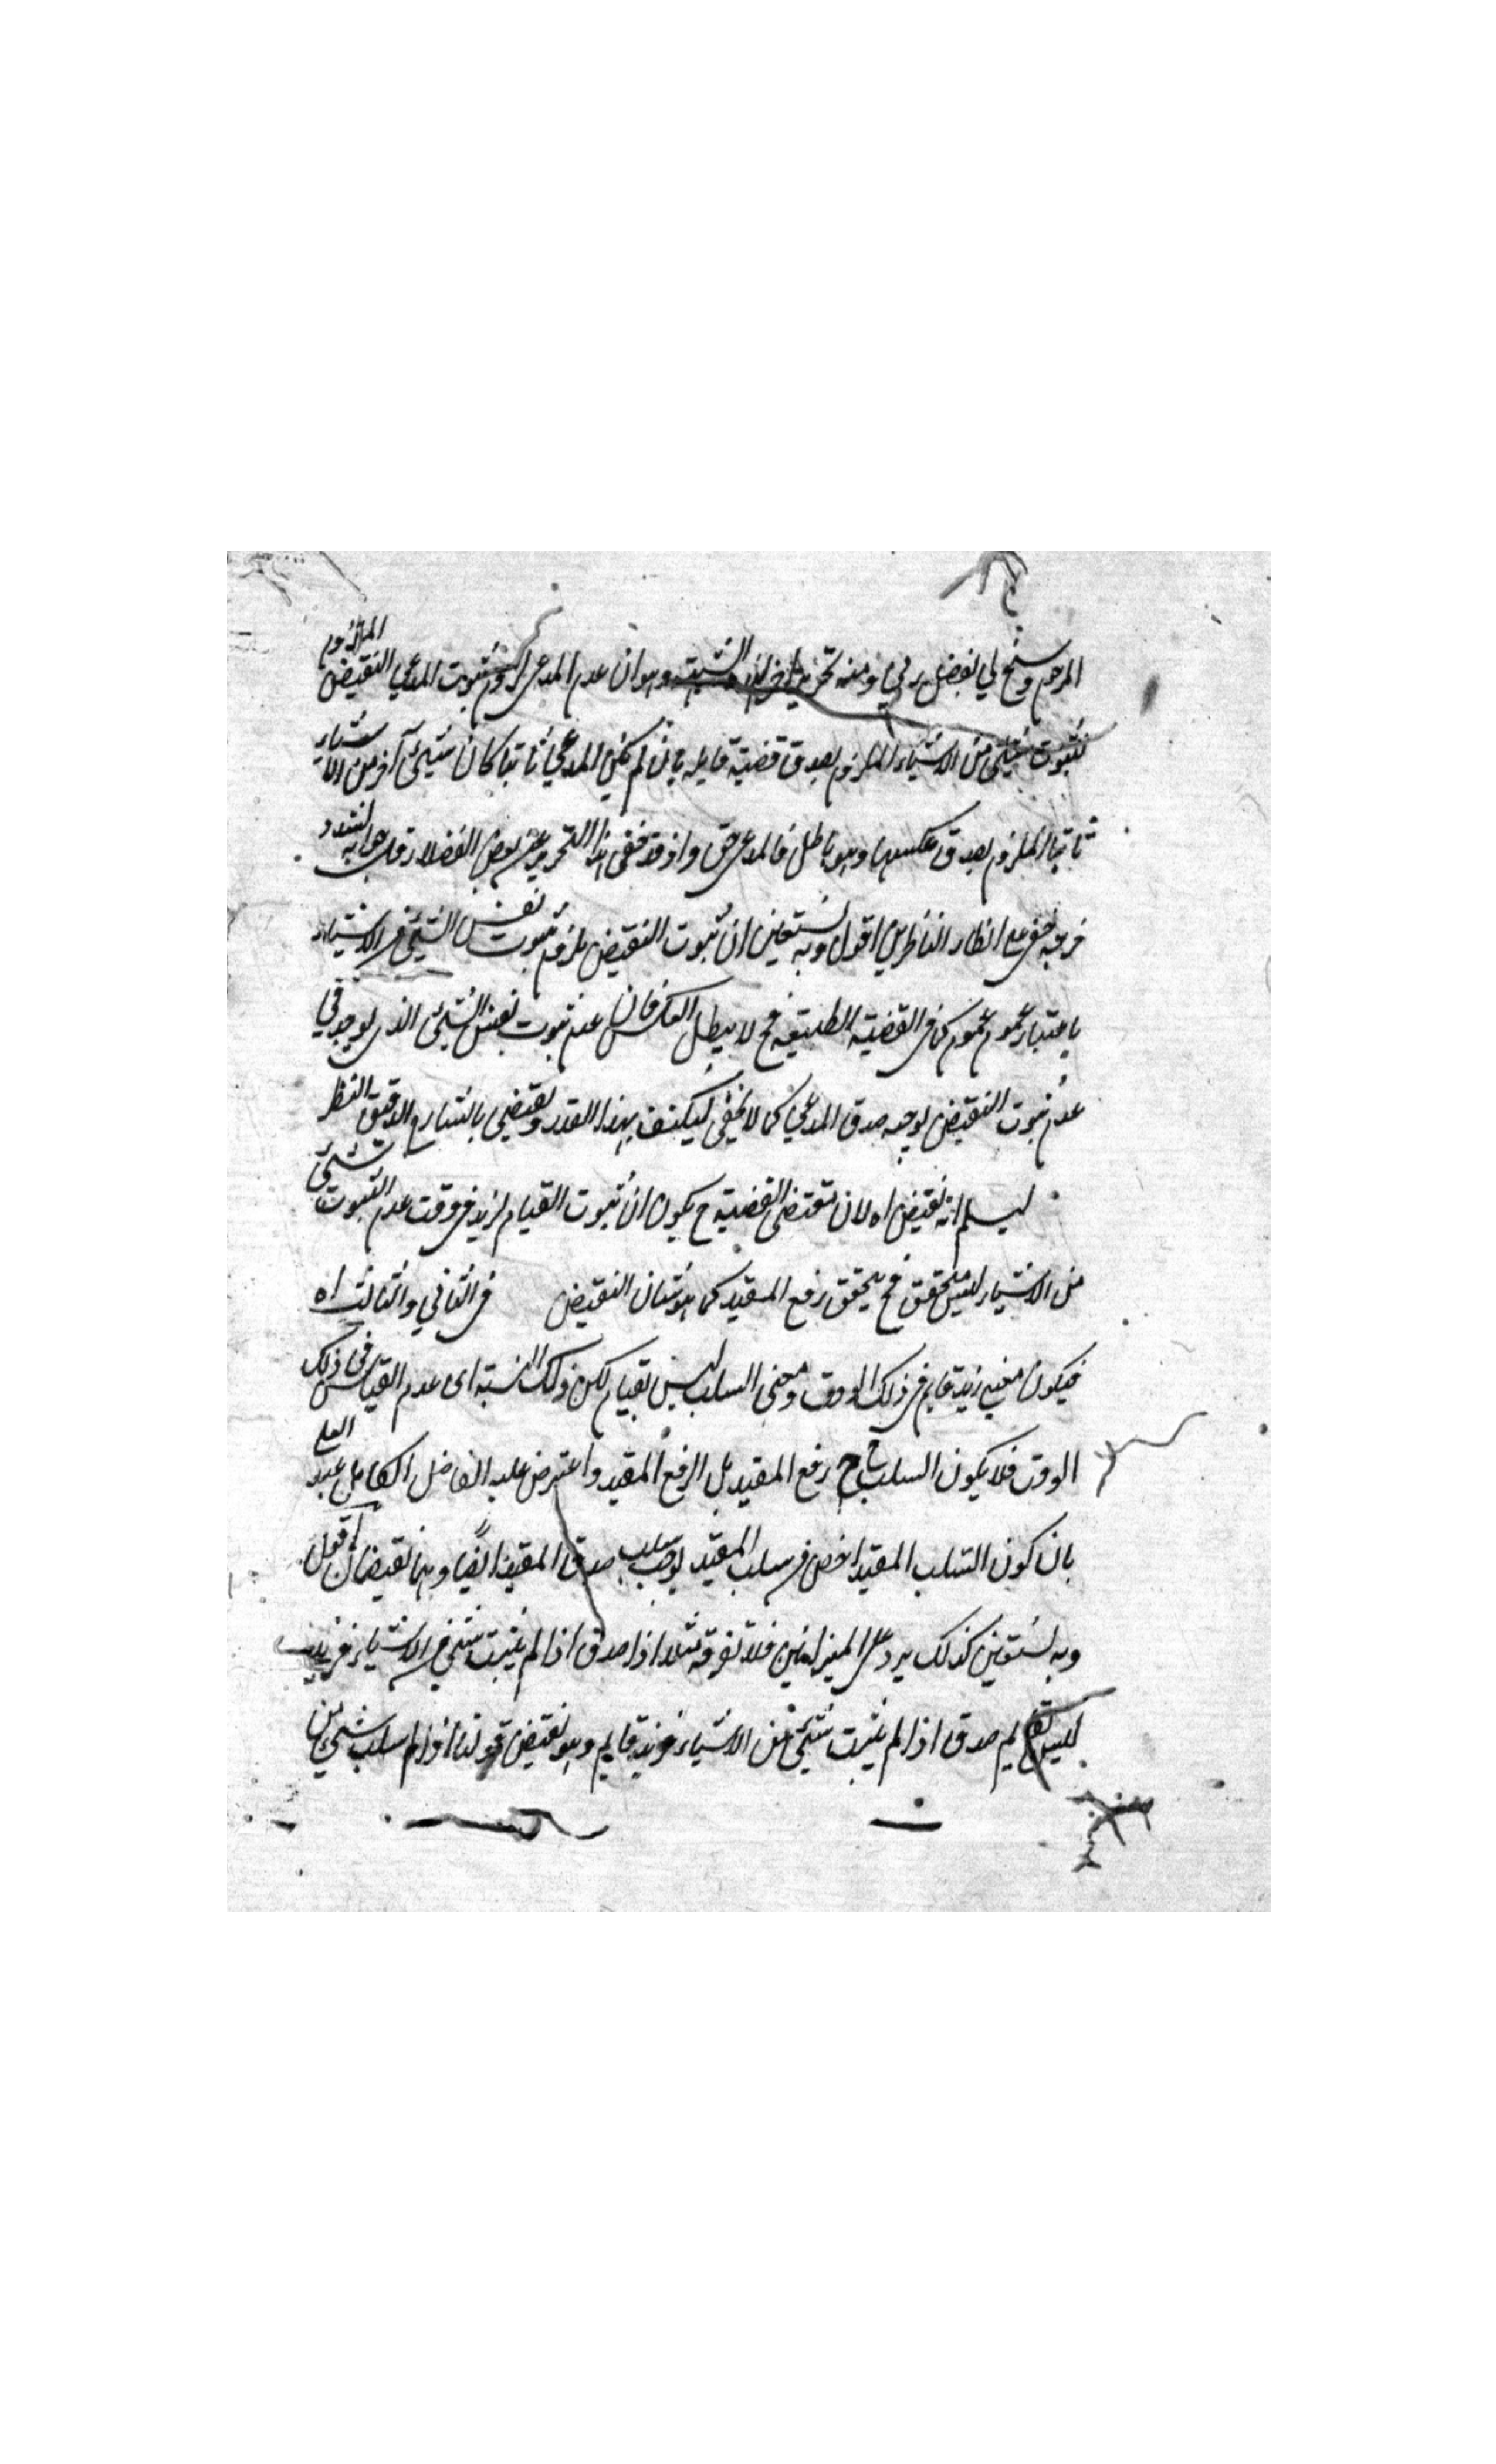 المرحوم وسنح لي بفضل ربي ومنه تحرير وهو ان عدم المدعى لزوم ثبوت المدعي النقيض الملازوم
ثبوت شيئ من الاشياء الملزوم بصدق قضية قايلة بان لم يكن المدعي ثابتا كان شيئ آخر من الاشياء
ثابتا الملزوم بصدق عكسها وهو باطل فالمدعى حق واذ قد خفى هذا التحرير عن بعض الفضلاء
خفى على انظار الناظرين اقول وبه نستعين ان ثبوت النقيض يلزم ثبوت نفس الشيئ من الاشياء
باعتبار عموم كما في القضية الطبيعة فح لا يبطل العكس فان عدم ثبوت نفس الشيئ الذي يوجد في
عدم ثبوت النقيض يوجب صدق المدعي كما لا يخفى ليكتف بهذا القدر ويقتضي بالتسارع الدقيق النظر
ليسلم انه نقيض اه لان مقتضى القضية ح يكون ان ثبوت القيام لزيد في وقت عدم الثبوت شئ
من الاشياء ليس متحقق فح يتحقق رفع المقيد كما هو شان النقيض في الثاني والثالث اه
فيكون معنى زيد قايم في ذلك الوقت ومعنى السلب ليس بقيام لكن ذلك النسبة اى عدم القيام في ذلك
الوقت فلا يكون السلب ح رفع المقيد بل الرفع المقيد واعترض عليه الفاضل الكامل عبد العلي
بان كون السلب المقيد اخص من سلب المقيد يوجب سلب صدق المقيد ايضا وهما نقيضان اقول
وبه نستعين كذلك يرد على الميزانيين فلا تفرقة مثلا اذا صدق اذا لم يثبت شئ من الاشياء فزيد
ليس بقايم صدق اذا لم يثبت شيئ من الاشياء فزيد قايم وهو نقيض قولنا اذا لم سلب شئ من